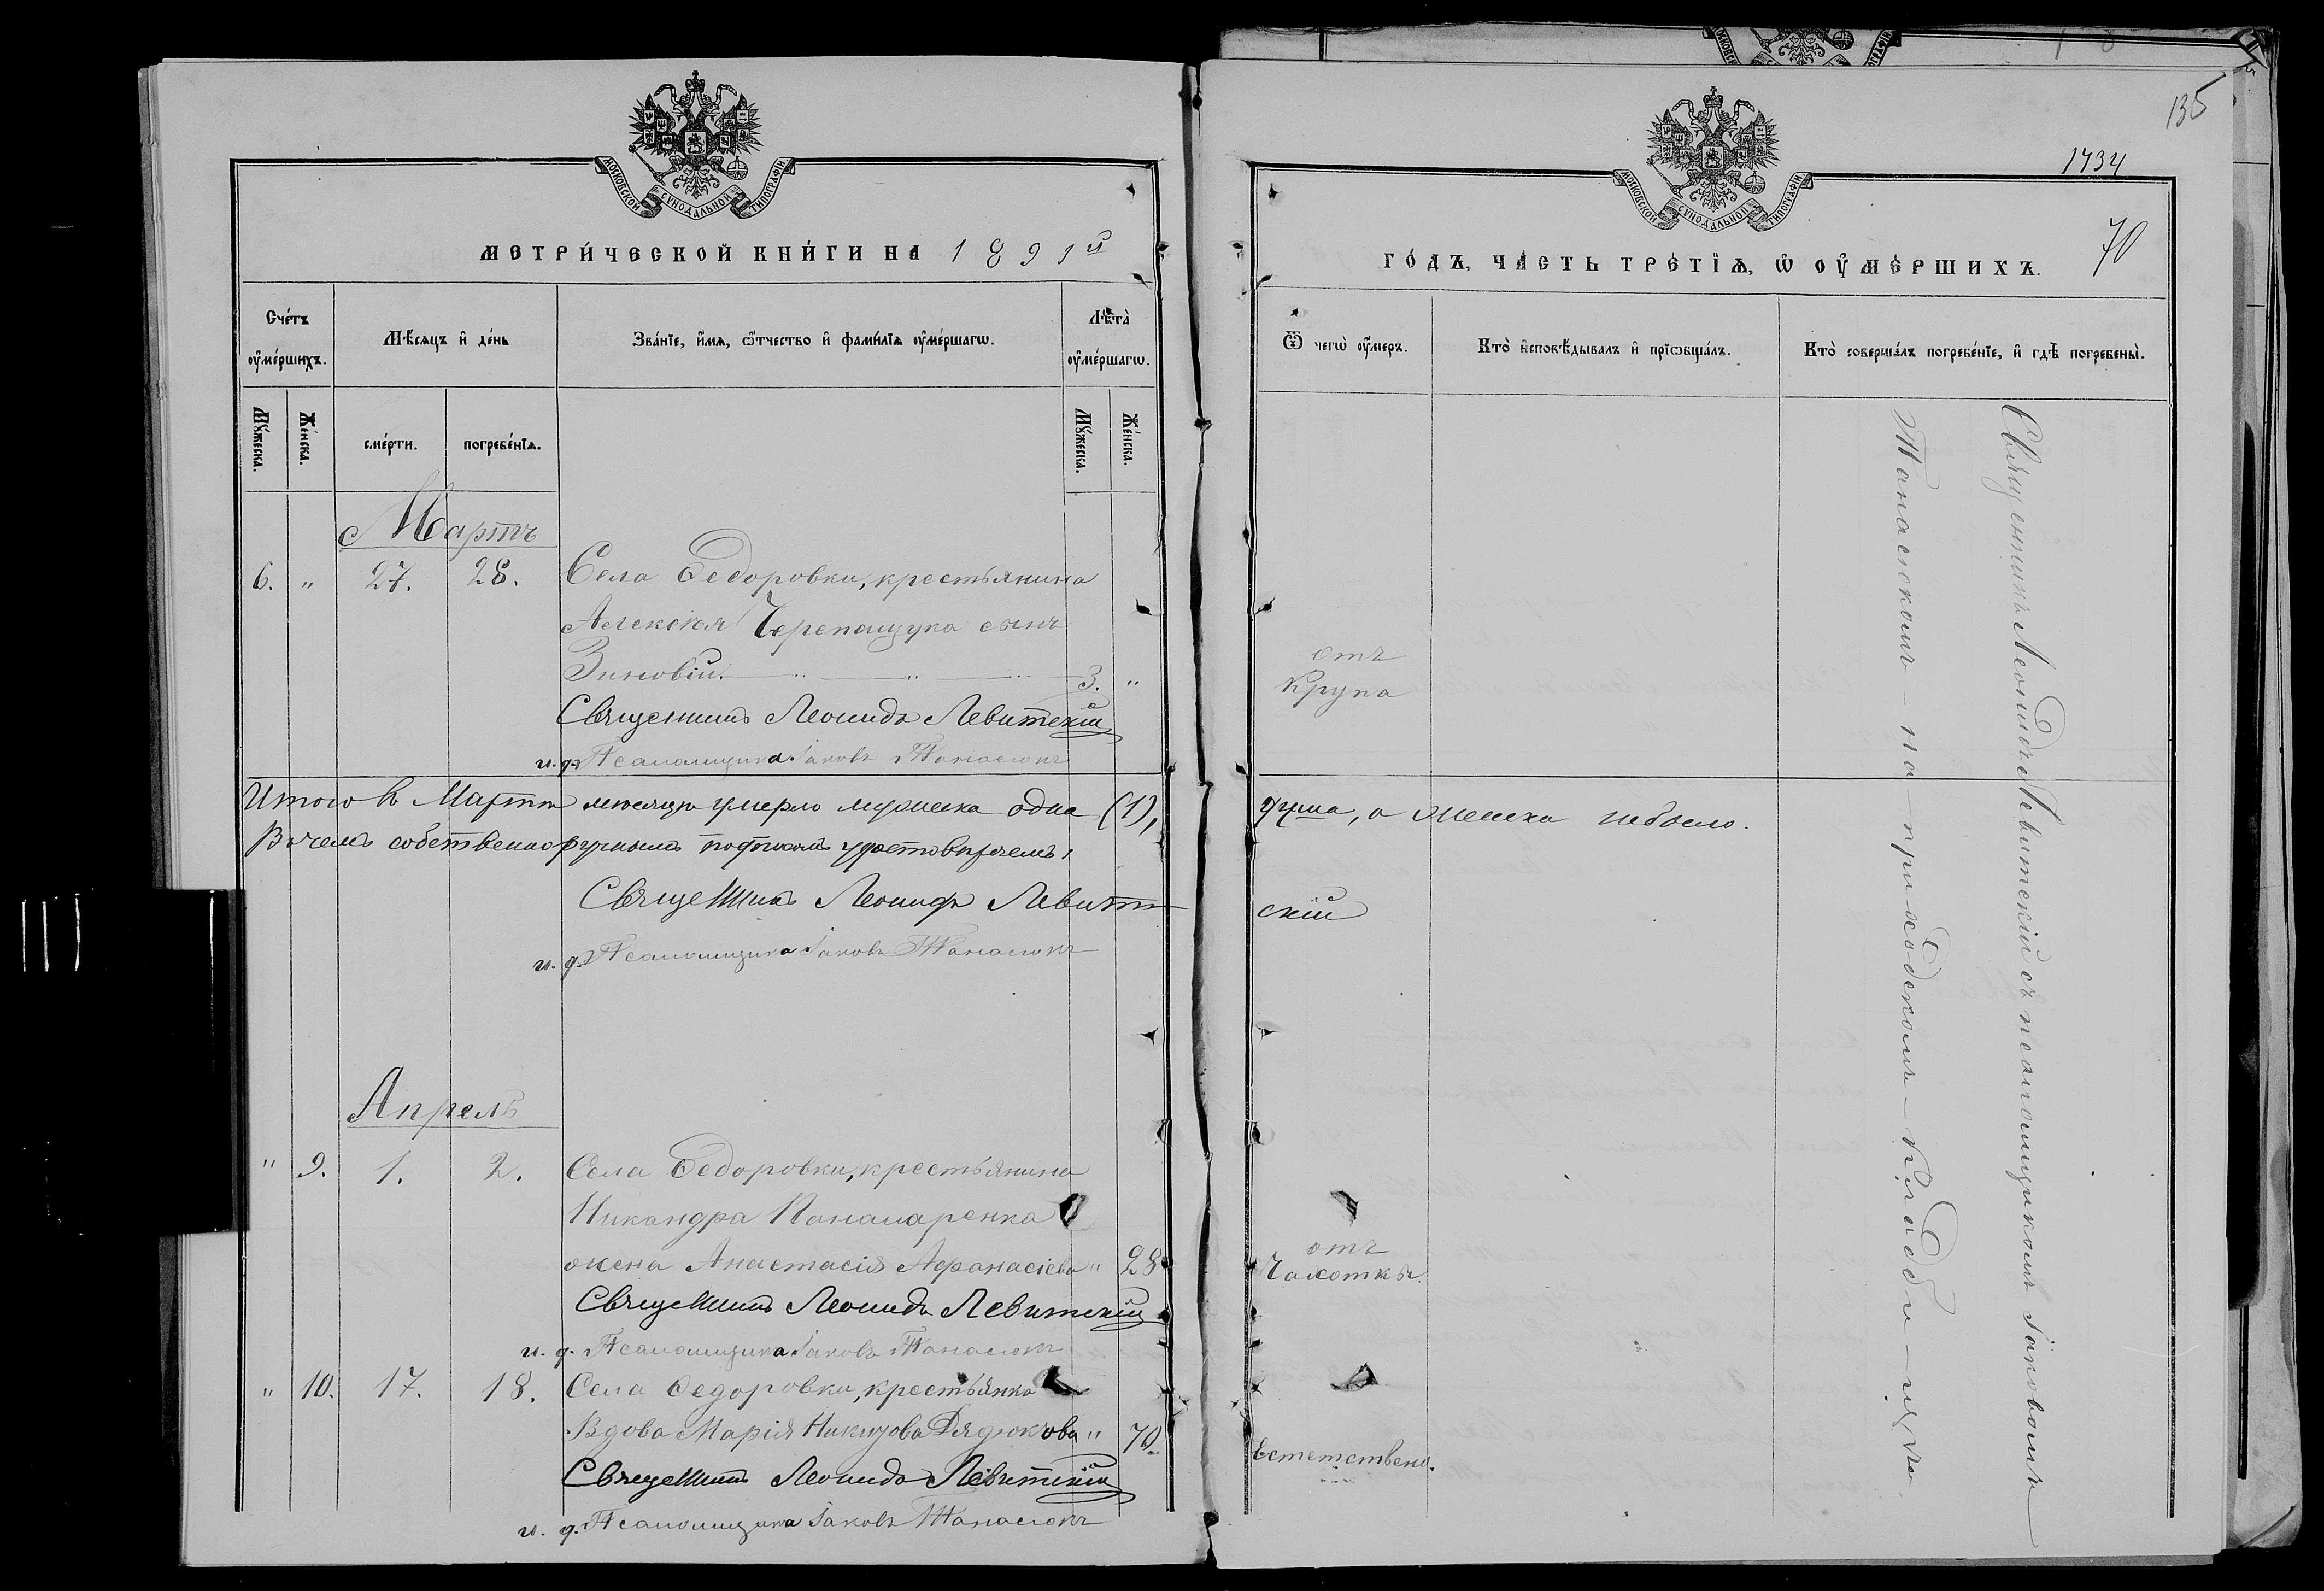 МОСКОВСКОЙ СѴНОДАЛЬНОЙ ТИПОГРАФІИ
МЕТРИ́ЧЕСКОЙ КНИ́ГИ НА 1891й
Сче́тъ оу҆ме́ршихъ.
Мѣ́сяцъ и҆ де́нь
Зва́нїе, и҆́мѧ, ѻ҆́тчество и҆ фами́лїѧ оу҆ме́ршагѡ.
Лѣ́та оу҆ме́ршагѡ.
Мꙋ́жеска.
Же́нска.
сме́рти.
погребе́нїѧ.
Мꙋ́жеска.
Же́нска.
Мартъ
6. " 27. 28. Села Ѳедоровки, крестьянина
Алексѣя Черепащука сынъ
Зиновій. 3. "
Священникъ Леонидъ Левитскій
и. д. Псаломщика Іаковъ Танасюкъ
Итого въ Мартѣ мѣсяцѣ умерло мужеска одна (1),
Въ чемъ собственноручнымъ подписомъ удостовѣряемъ:
Священникъ Леонидъ Левит
и. д. Псаломщика Іаковъ Танасюкъ
Апрель
" 9. 1. 2. Села Ѳедоровки, крестьянина
Никандра Панамаренка
жена Анастасія Афанасіева " 28
Священникъ Леонидъ Левитскій
и. д. Псаломщика Іаковъ Танасюкъ
" 10. 17. 18. Села Ѳедоровки, крестьянка
Вдова Марія Дядюкова " 70.
Священникъ Леонидъ Левитскій
и. д. Псаломщика Іаковъ Танасюкъ
135
1734
70
МОСКОВСКОЙ СѴНОДАЛЬНОЙ ТИПОГРАФІИ
ГО́ДЪ, ЧА́СТЬ ТРЕ́ТЇѦ, Ѡ҆ ОУ҆МЕ́РШИХЪ.
Ѿ чегѡ̀ оу҆́меръ.
Кто̀ и҆сповѣ́дывалъ и҆ прїѡбща́лъ.
Кто̀ соверша́лъ погребе́нїе, и҆ гдѣ̀ погребены̀.
отъ
Крупа
душа, а женска небыло.
скій
отъ
Чахотки.
Естетствено.
Священникъ Леонидъ Левитскій съ псаломщикомъ Іаковомъ
Танасюкомъ – на – приходскомъ – кладби – щѣ.